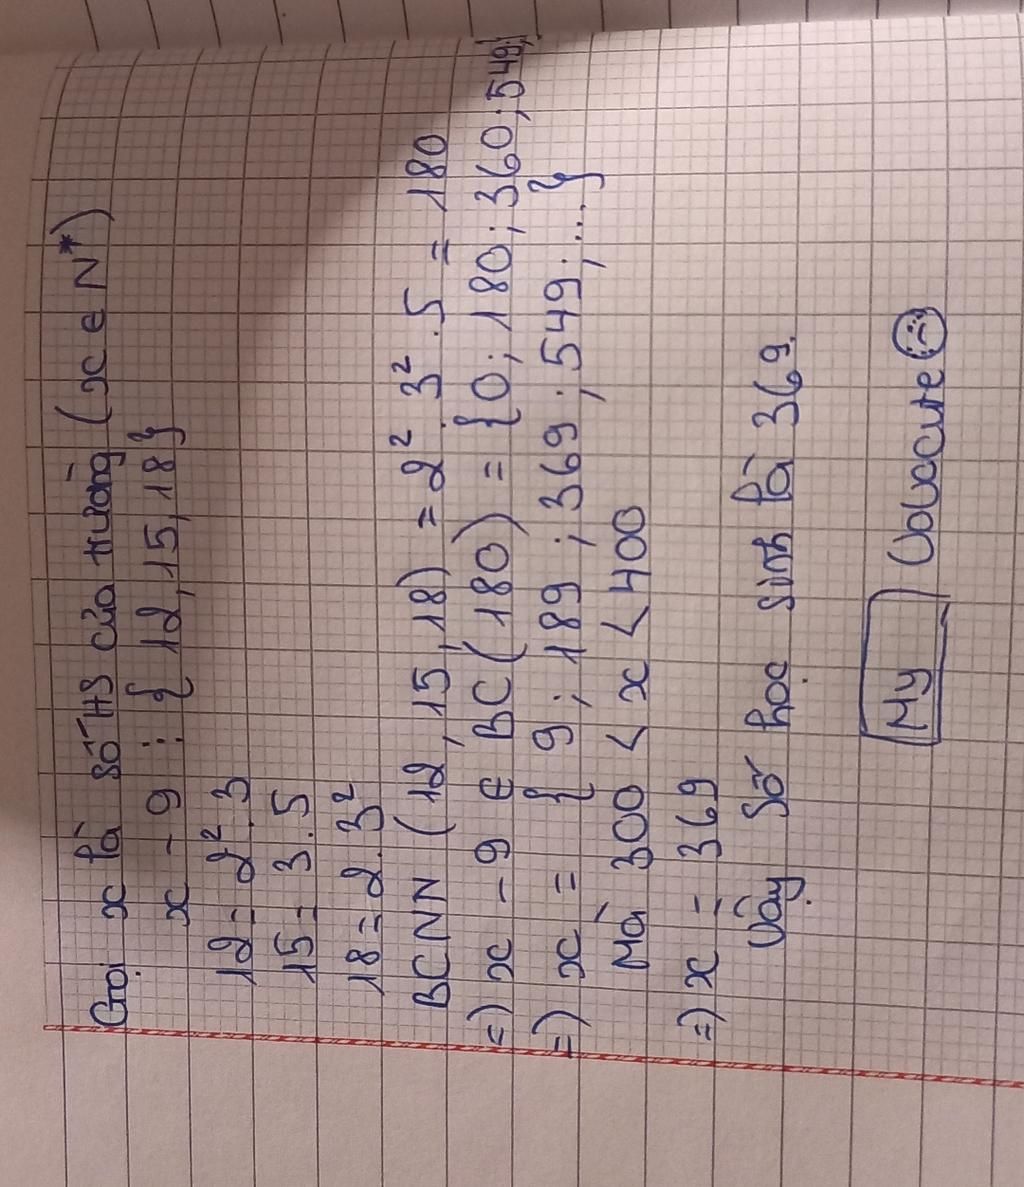 Gọi x là số HS của trường (x ∈ N*)
x - 9 ⋮ {12,15,18}
12 = 2² . 3
15 = 3 . 5
18 = 2 . 3²
BCNN (12,15,18) = 2² . 3² . 5 = 180
=) x - 9 ∈ BC (180) = {0; 180; 360; 549;
=) x = { 9; 189; 369; 549; ...}
Mà 300 < x < 400
=) x = 369
Vậy số học sinh là 369.
My Uouccute